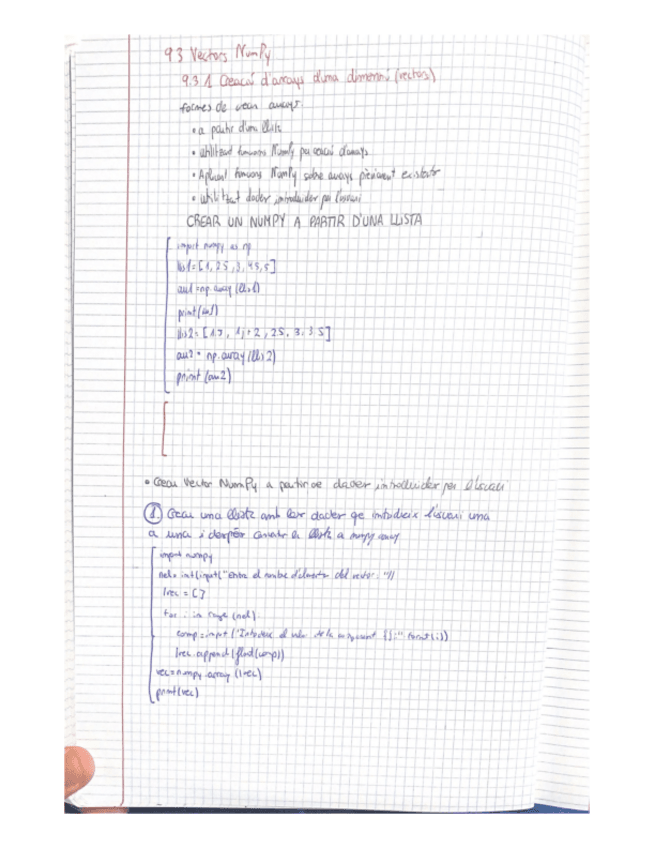 9.3 Vectors NumPy
9.3.1 Creació d'arrays d'una dimensió (vectors)
formes de crear arrays:
• a partir d'una llista
• utilitzant funcions NumPy per creació d'arrays
• Aplicant funcions NumPy sobre arrays prèviament existents
• utilitzant dades introduides per l'usuari
CREAR UN NUMPY A PARTIR D'UNA LLISTA
import numpy as np
llis1=[1, 2.5, 3, 4.5, 5]
arr1=np.array(llis1)
print(arr1)
llis2=[1.7, 1j+2, 2.5, 3, 3.5]
arr2= np.array(llis2)
print(arr2)
• Crear Vector NumPy a partir de dades introduides per l'usuari
1 Crear una llista amb les dades qe introdueix l'usuari una
a una i després convertir la llista a numpy array
import numpy
nel= int(input("Entra el nombre d'elements del vector: "))
lvec = []
for i in range(nel):
comp=input("Introdueix el valor de la component {}:" format(i))
lvec.append(float(comp))
vec=numpy.array(lvec)
print(vec)